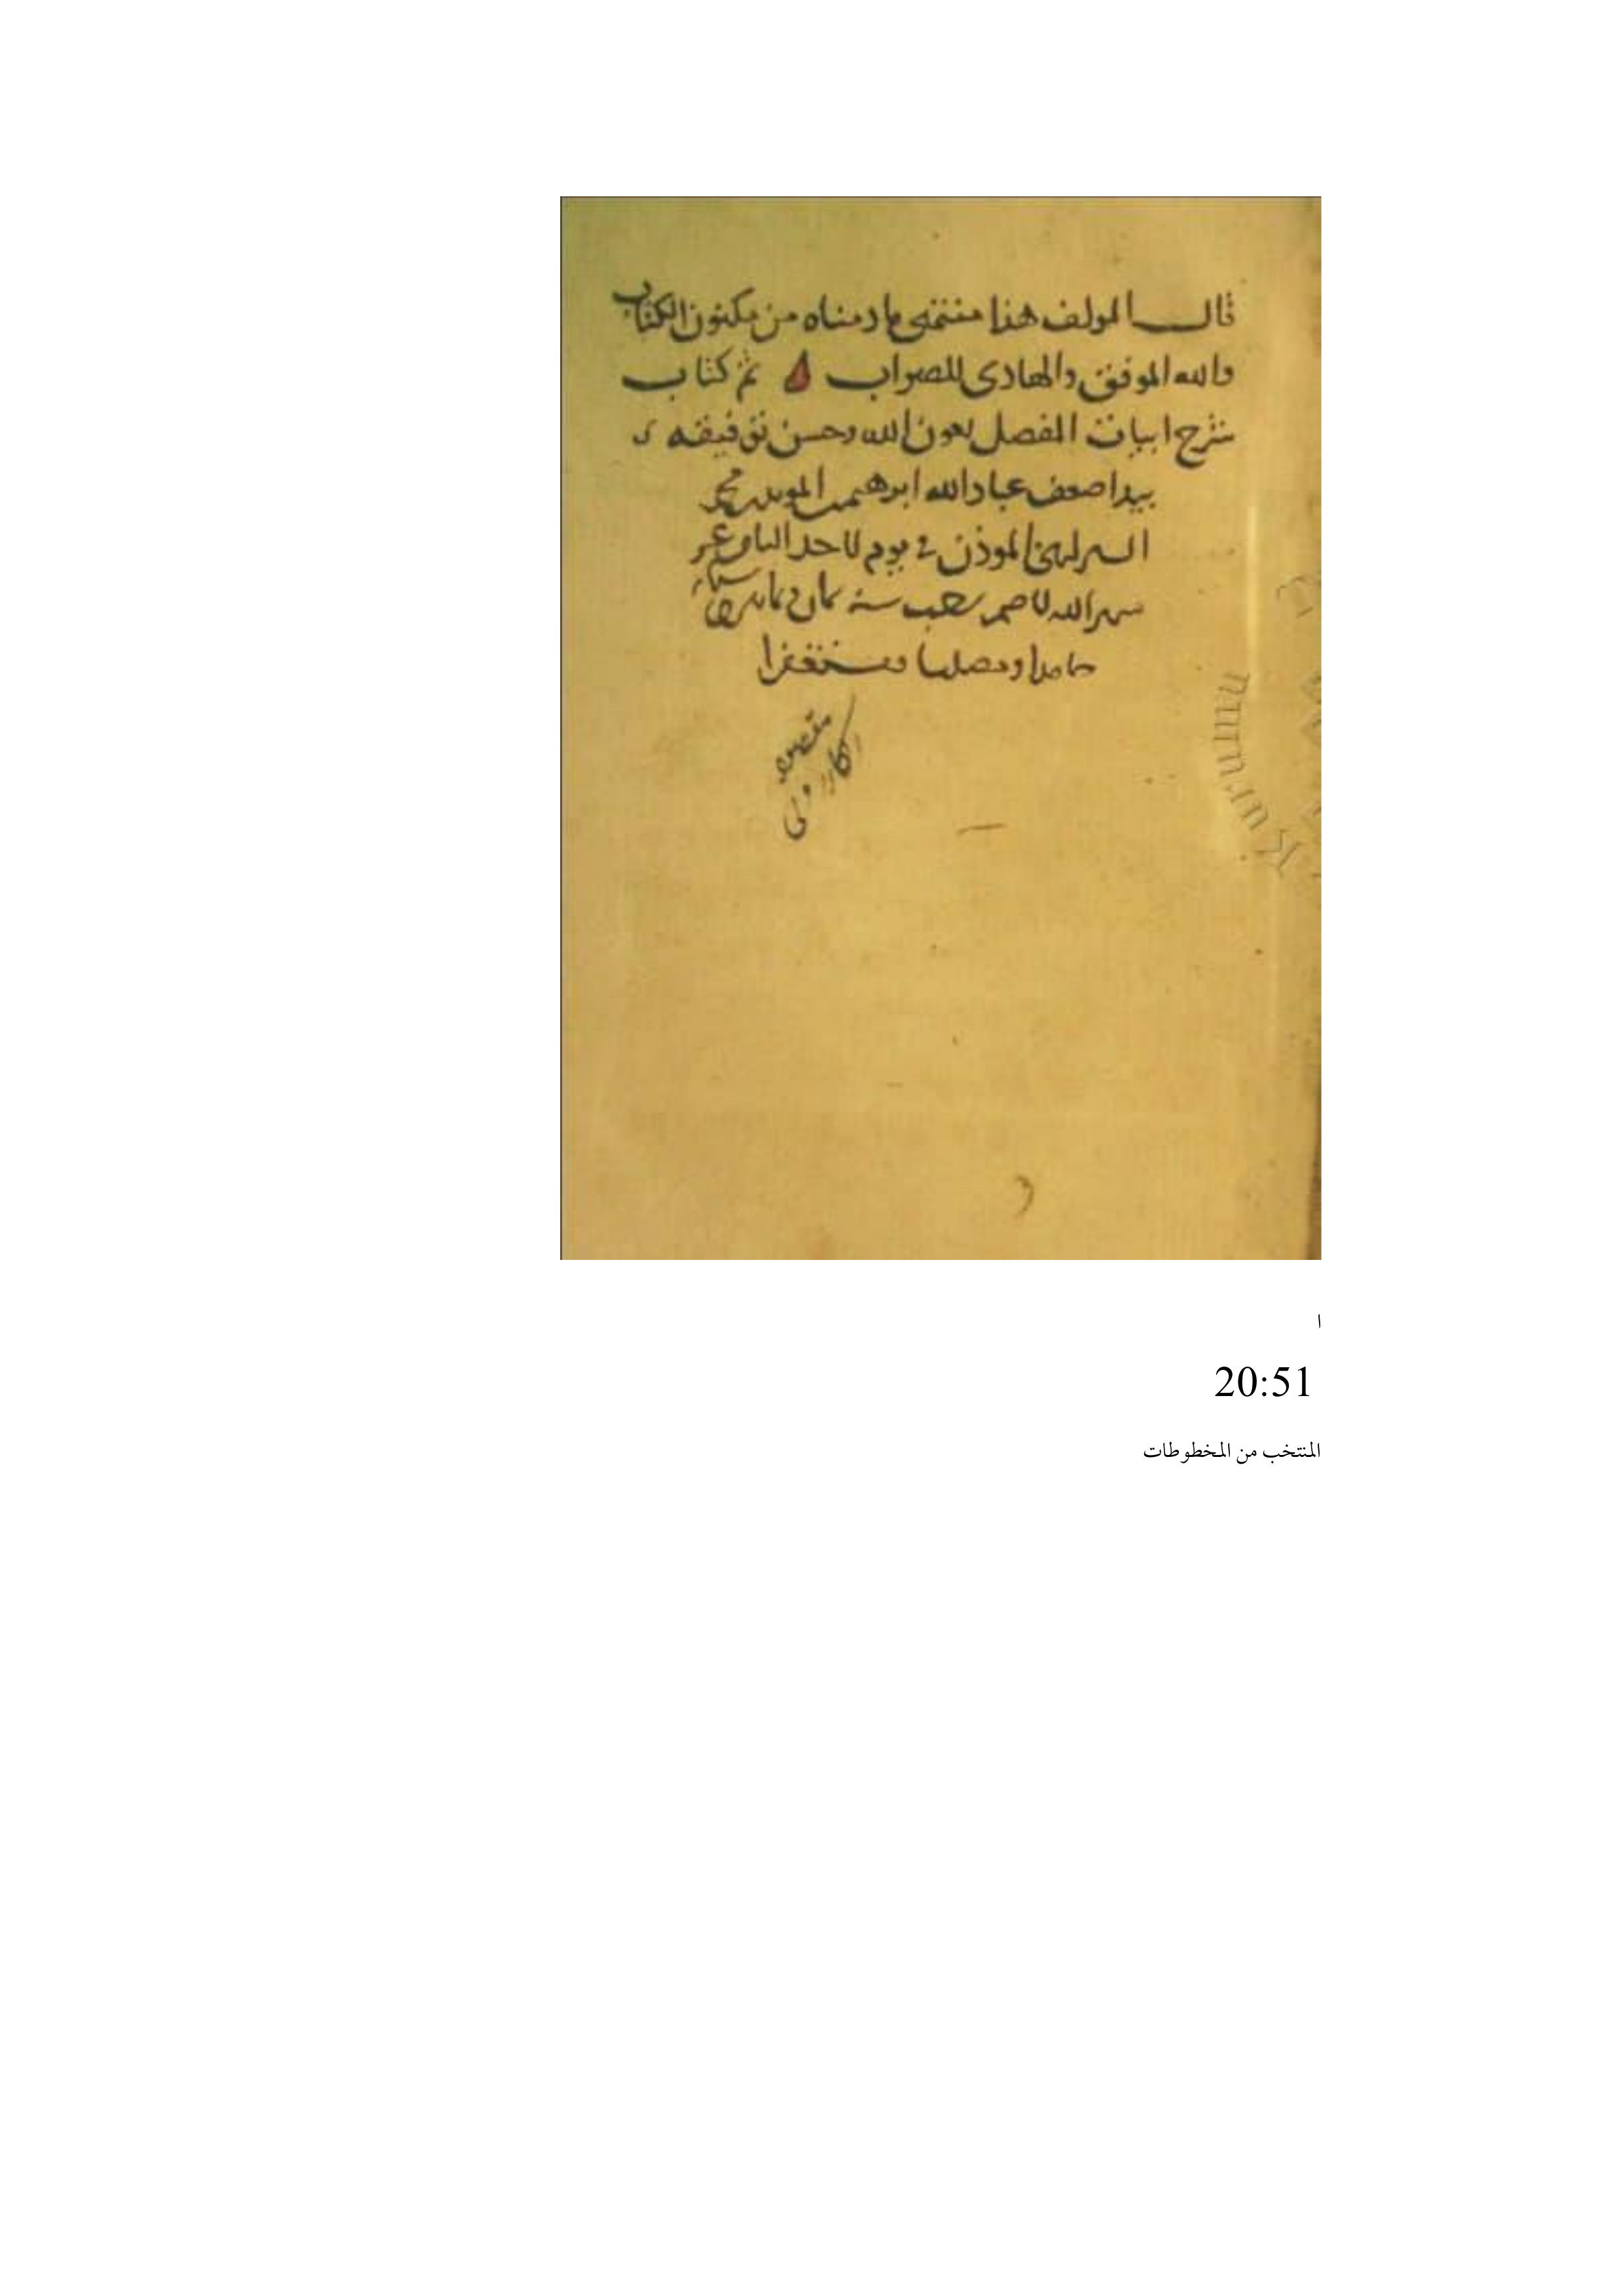 قال المولف هذا منتهى ما رمناه من مكنون الكتاب
والله الموفق والهادى للصواب تم كتاب
شرح ابيات المفصل بعون الله وحسن توفيقه
بيد اضعف عباد الله ابرهيم بن محمد
المؤذن في يوم الاحد الثامن عشر
شهر الله الاصم رجب سنة ثمان وثمانين
حامدا ومصليا ومستغفرا
ا
20:51
المنتخب من المخطوطات